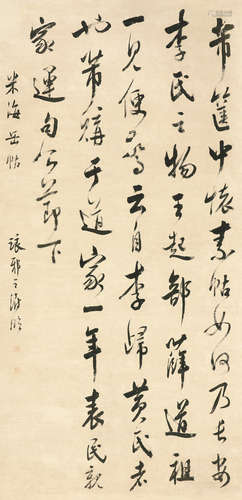 常篋中懷素帖如何乃長安
李氏之物王起部薛道祖
一見便驚云自李歸黃氏者
也帶購于道家一年表民親
家運句公節下
米海岳帖
琅邪王澍臨